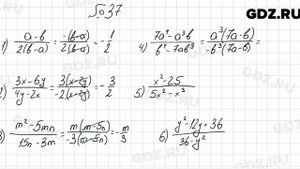 GDZ.RU
№ 37
1) \frac{a-b}{2(b-a)} = \frac{-(b-a)}{2(b-a)} = -\frac{1}{2}
4) \frac{7a^4-a^3b}{b^4-7ab^3} = \frac{a^3(7a-b)}{-b^3(7a-b)} =
2) \frac{3x-6y}{4y-2x} = \frac{3(x-2y)}{-2(x-2y)} = -\frac{3}{2}
5) \frac{x^2-25}{5x^2-x^3}
3) \frac{m^2-5mn}{15n-3m} = \frac{m(m-5n)}{-3(m-5n)} = -\frac{m}{3}
6) \frac{y^2-12y+36}{36-y^2}
GDZ.RU